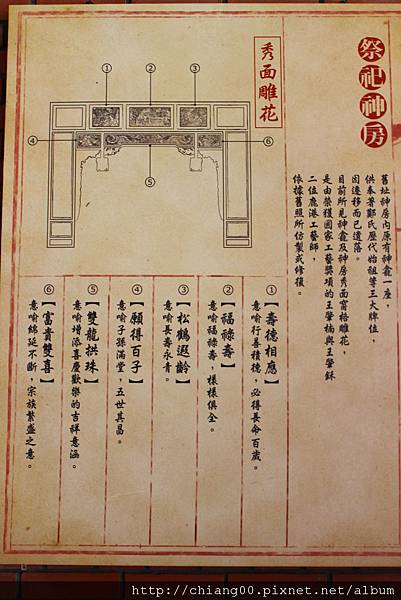 祭祀神房
舊址神房內原有神龕一座，
供奉著鄭氏歷代始祖等三大牌位，
因遷移而已遺落。
目前所見神龕及神房秀面窗格雕花，
是由榮獲國家工藝獎項的王肇楠與王肇鉌
二位鹿港工藝師，
依據舊照所仿製式修復。
秀面雕花
①
②
③
④
⑤
⑥
①
【壽德相應】
意喻行善積德，必得長命百歲。
②
【福祿壽】
意喻福祿壽，樣樣俱全。
③
【松鶴遐齡】
意喻長壽永青。
④
【願得百子】
意喻子孫滿堂，五世其昌。
⑤
【雙龍拱珠】
意喻增添喜慶歡樂的吉祥意涵。
⑥
【富貴雙喜】
意喻綿延不斷，宗族繁盛之意。
http://chiang00.pixnet.net/album